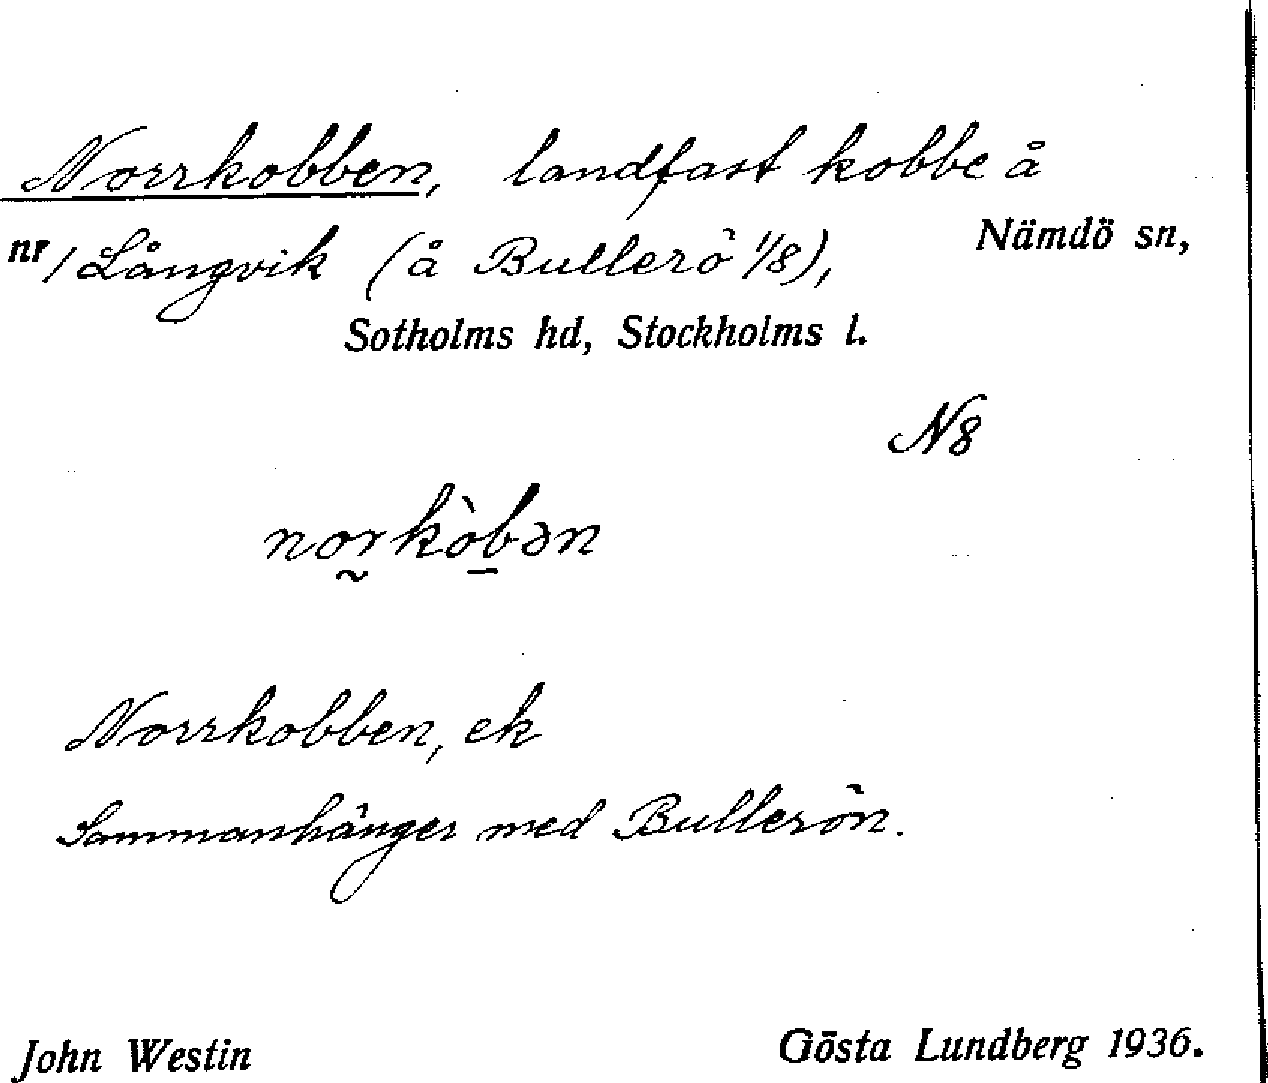 Norrkobben, landfast kobbe å
nr/Långvik (å Bullerö 1/8), Nämdö sn,
Sotholms hd, Stockholms l.
N8
nor̰kòb̲ən
Norrkobben, ek
Sammanhänger med Bullerön.
John Westin Gösta Lundberg 1936.